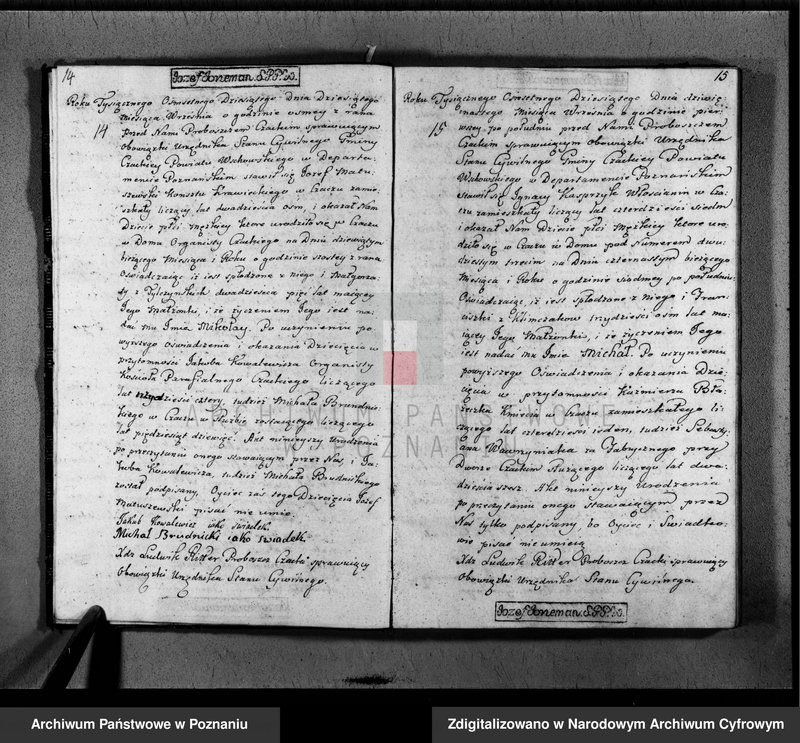 14
Józef Joneman. S.P.P.W.
Roku Tysiącznego Osmsetnego Dziesiątego Dnia Dziesiątego
14
Miesiąca Września o godzinie osmey z rana
przed Nami Proboszczem Czackim sprawuiącym
Obowiązki Urzędnika Stanu Cywilnego Gminy
Czackiey Powiatu Wschowskiego w Departa-
mencie Poznańskim stawił się Jozef Matu-
szewski Kunsztu Krawieckiego w Czaczu zamie-
szkały liczący lat dwadziescia osm, i okazał Nam
Dziecię płci męzkiey ktore urodziło się w Czaczu
w Domu Organisty Czackiego na Dniu dziewiątym
bieżącego Miesiąca i Roku o godzinie szostey z rana
Oswiadczaiąc iż iest spłodzone z niego i Małgorza-
ty z Tylczynskich dwadziescia pięć lat maiącey
Jego Małżonki, i że życzeniem Jego iest na-
dać mu Jmie Mikołay. Po uczynieniu po-
wyższego Oświadczenia i okazania Dziecięcia w
przytomności Jakuba Kowalewicza Organisty
Kościoła Parafialnego Czackiego liczącego
lat trzydzieści cztery, tudzież Michała Brudnic-
kiego w Czaczu w Służbie zostaiącego liczącego
lat pięćdziesiąt dziewięć. Akt ninieyszy Urodzenia
po przeczytaniu onego stawaiącym przez Nas, i Ja-
kuba Kowalewicza, tudzież Michała Brudnickiego
został podpisany, Oyciec zaś tego Dziecięcia Jozef
Matuszewski pisać nie umie.
Jakub Kowalewicz jako swiadek
Michał Brudnicki jako swiadek
Xdz Ludwik Ritter Proboszcz Czacki sprawuiący
Obowiązki Urzędnika Stanu Cywilnego.
15
Roku Tysiącznego Osmsetnego Dziesiątego Dnia dziewię-
15
tnastego Miesiąca Września o godzinie pier-
wszey po południu przed Nami Proboszczem
Czackim sprawuiącym Obowiązki Urzędnika
Stanu Cywilnego Gminy Czackiey Powiatu
Wschowskiego w Departamencie Poznańskim
Stawił się Jgnacy Kasprzyk Włościanin w Cza-
czu zamieszkały liczący lat czterdzieści siedm
i okazał Nam Dziecię płci Męzkiey ktore uro-
dziło się w Czaczu w Domu pod Numerem dwu-
dziestym trzecim na Dniu czternastym bieżącego
Miesiąca i Roku o godzinie siodmey po południu
Oświadczaiąc, iż iest spłodzone z Niego i Fran-
ciszki z Klimczakow trzydzieści osm lat ma-
iącey Jego Małżonki, i że życzeniem Jego
iest nadać mu Jmie Michał. Po uczynieniu
powyższego Oświadczenia i okazania Dzie-
cięcia w przytomności Kaźmierza Bła-
szczka Kmiecia w Czaczu zamieszkałego li-
czącego lat czterdzieści ieden, tudzież Sebasty-
ana Wawrzyniaka za Fabrycznego przy
Dworze Czackim służącego liczącego lat dwa-
dziescia szesc. Akt ninieyszy Urodzenia
po przeczytaniu onego stawaiącym przez
Nas tylko podpisany, bo Oyciec i Swiadko-
wie pisać nie umieią
Xdz Ludwik Ritter Proboszcz Czacki sprawuiący
Obowiązki Urzędnika Stanu Cywilnego.
Józef Joneman. S.P.P.W.
ARCHIWUM PAŃSTWOWE
W POZNANIU
Archiwum Państwowe w Poznaniu
Zdigitalizowano w Narodowym Archiwum Cyfrowym